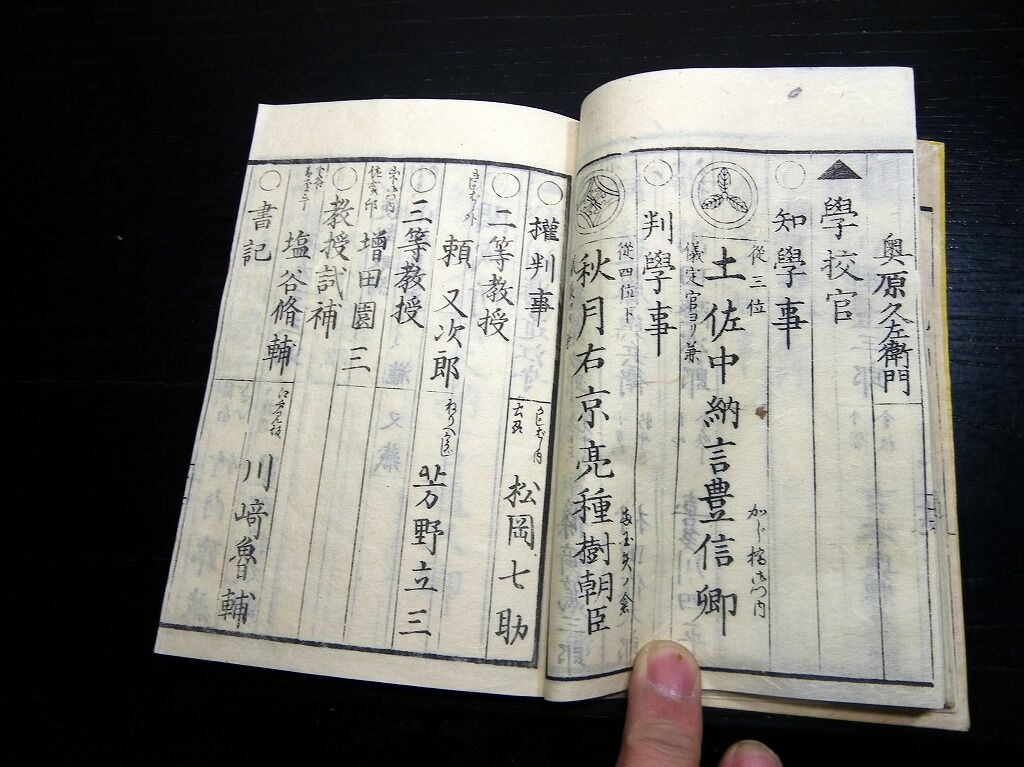 奥原久左衛門
▲學校官
○知學事
從三位
土佐中納言豊信卿
儀定官ヨリ兼
○判學事
從四位下
秋月右京亮種樹朝臣
○權判事
松岡七助
○二等教授
頼又次郎
芳野立三
○三等教授
増田園三
○教授試補
塩谷脩輔
○書記
川﨑魯輔